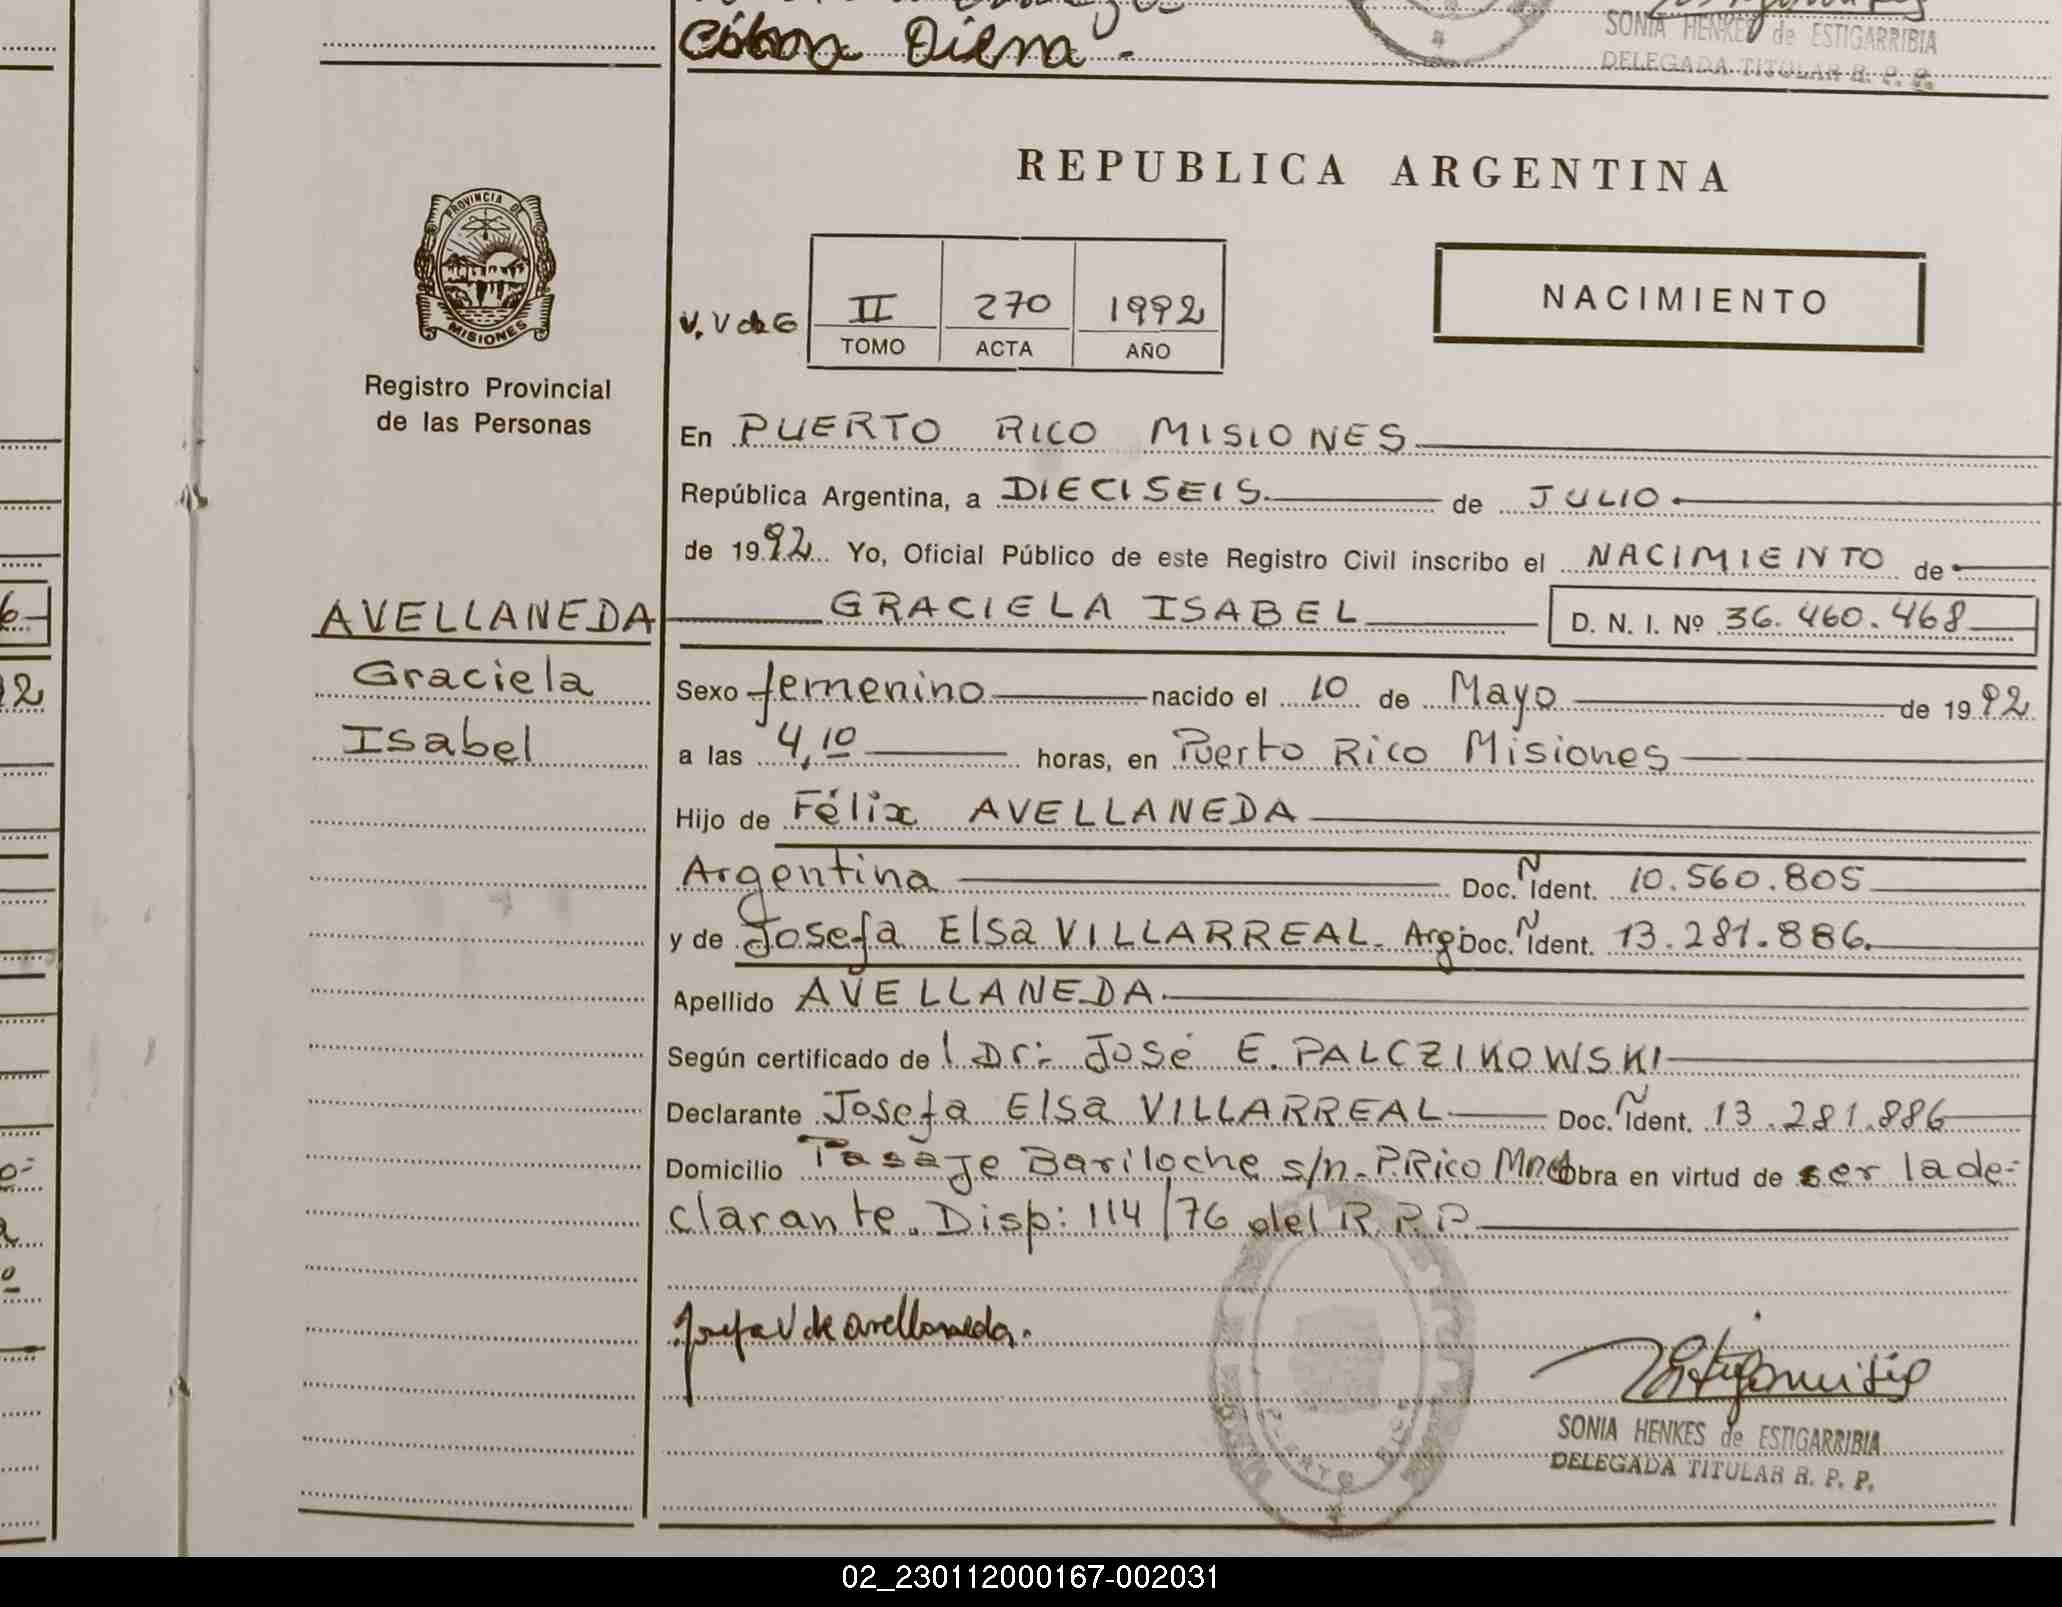 SONIA HENKES de ESTIGARRIBIA
DELEGADA TITULAR R. P. P.
REPUBLICA ARGENTINA
PROVINCIA DE
MISIONES
Registro Provincial
de las Personas
II 270 1992
TOMO ACTA AÑO
NACIMIENTO
En PUERTO RICO MISIONES
República Argentina, a DIECISEIS de JULIO
de 1992 Yo, Oficial Público de este Registro Civil inscribo el NACIMIENTO de
AVELLANEDA GRACIELA ISABEL D. N. I. Nº 36.460.468
Graciela
Isabel
Sexo femenino nacido el 10 de Mayo de 1992
a las 4,10 horas, en Puerto Rico Misiones
Hijo de Félix AVELLANEDA
Argentina Doc. Ñ Ident. 10.560.805
y de Josefa Elsa VILLARREAL. Arg. Doc. Ñ Ident. 13.281.886.
Apellido AVELLANEDA.
Según certificado del Dr. José E. PALCZIKOWSKI
Declarante Josefa Elsa VILLARREAL Doc. Ñ Ident. 13.281.886
Domicilio Pasaje Bariloche s/n. P. Rico Mnes Obra en virtud de ser la de-
clarante. Disp: 114/76 del R.P.P.
Josefa V de Avellaneda.
SONIA HENKES de ESTIGARRIBIA
DELEGADA TITULAR R. P. P.
02_230112000167-002031